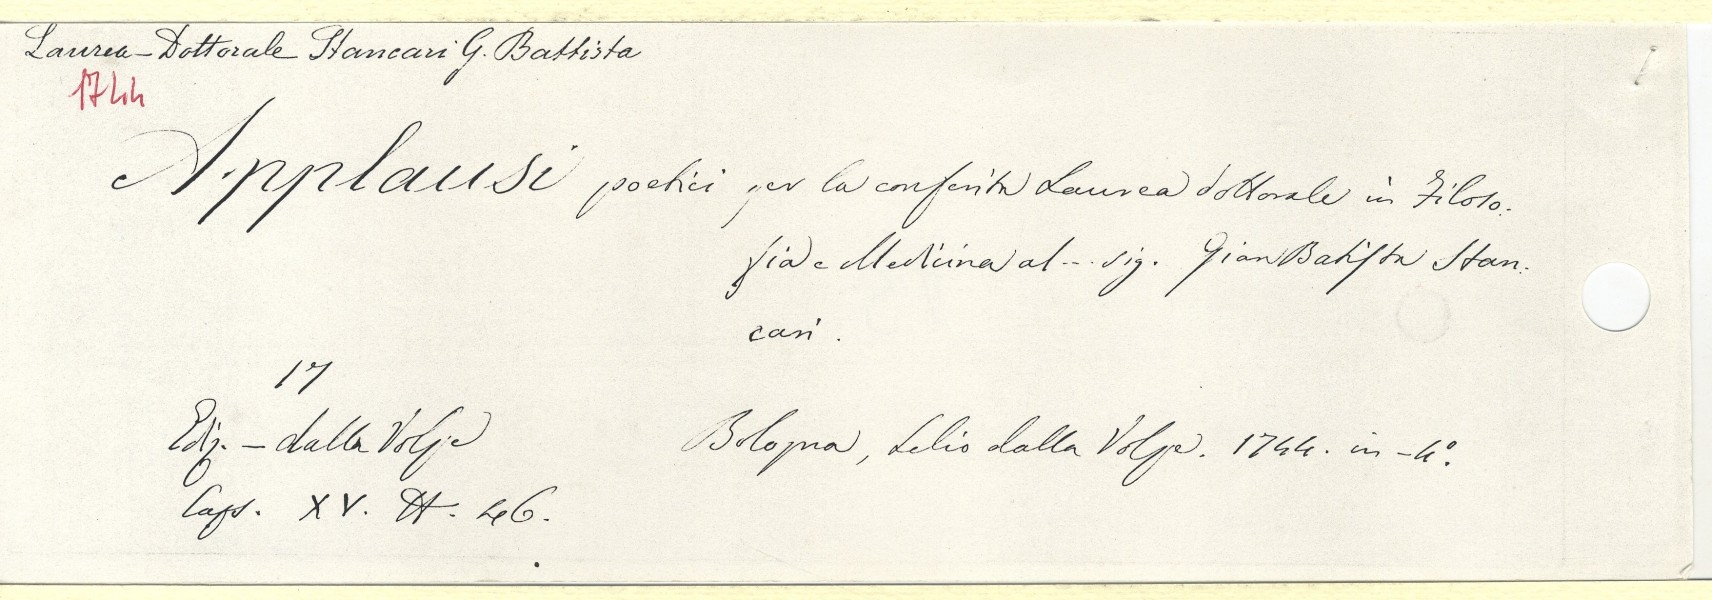 Laurea-Dottorale Stancari G. Battista
1744
Applausi poetici per la conferita Laurea dottorale in Filoso-
fia e Medicina al -- sig. Gian Batista Stan-
cari.
17
Ediz. - dalla Volpe
Bologna, Lelio dalla Volpe. 1744. in-4°.
Caps. XV. N. 46.